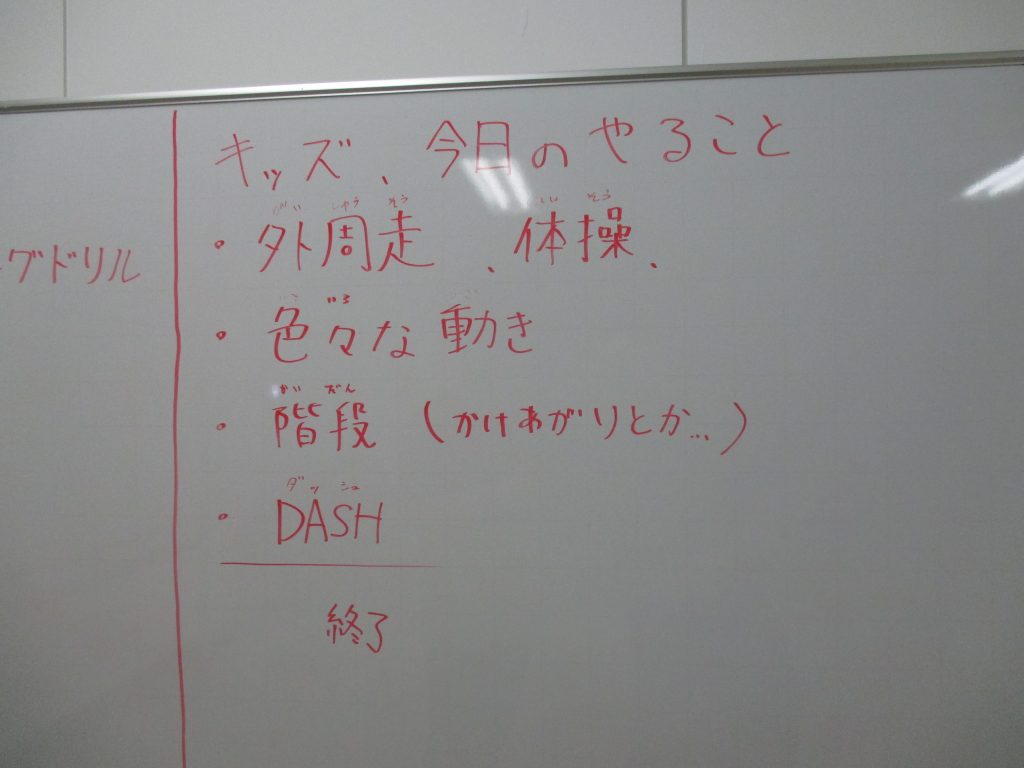 グドリル
キッズ、今日のやること
がい しゅう そう
・外周走、体操、
いろ
・色々な動き
かい だん
・階段(かけあがりとか...)
ダッシュ
・DASH
終了